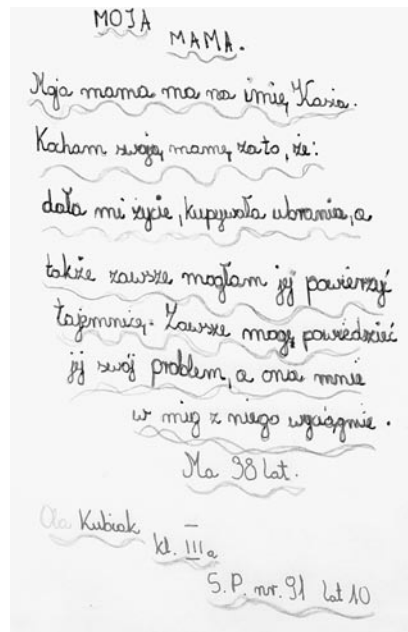 MOJA
MAMA.
Moja mama ma na imię Kasia.
Kocham swoją mamę za to, że:
dała mi życie, kupywała ubrania, a
także zawsze mogłam jej powierzyć
tajemnicę. Zawsze mogę powiedzieć
jej swój problem, a ona mnie
w mig z niego wyciągnie.
Ma 38 lat.
Ola Kubiak
kl. III a
S.P. nr. 91 lat 10